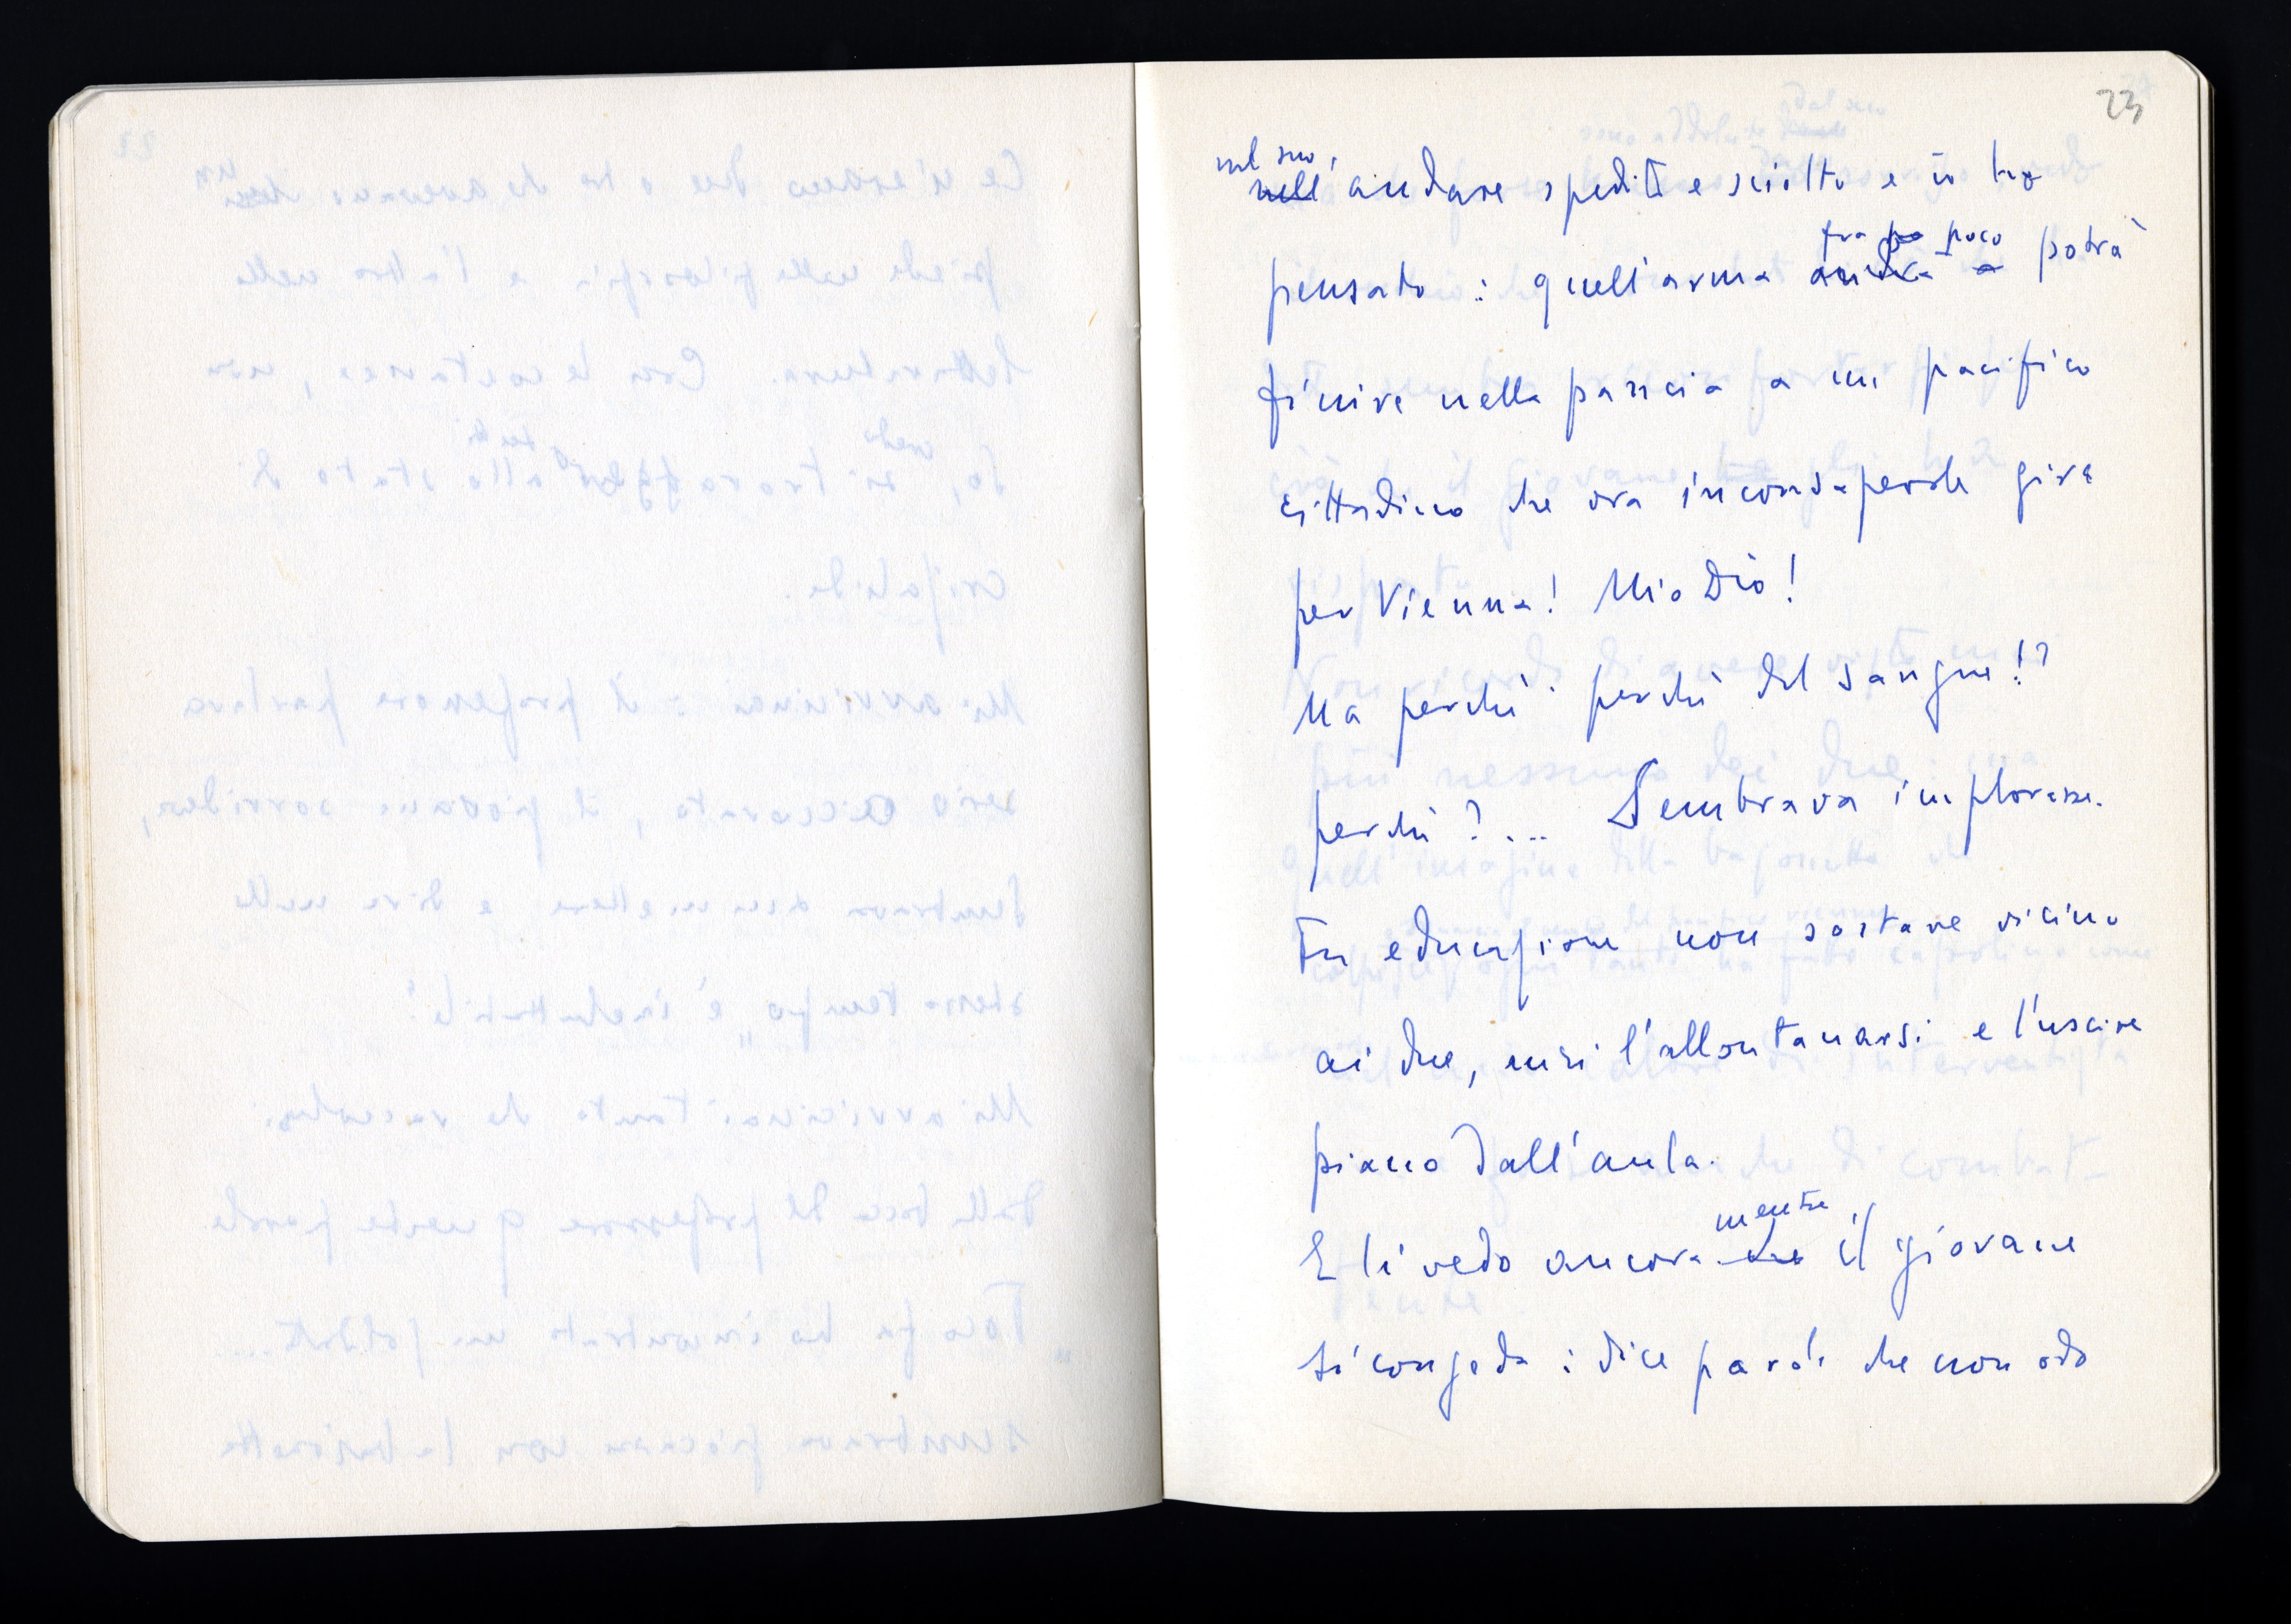 23
nel suo
nell' andare spedito e sciolto e io ho
fra po poco
pensato: quell'arma andrà a potrà
finire nella pancia a un pacifico
cittadino che ora inconsapevole gira
per Vienna! Mio Dio!
Ma perché perché del sangue!?
perché?... Sembrava implorasse.
Fu educazione non sostare vicino
ai due, mi l'allontanarsi e l'uscire
piano dall'aula.
mentre
E li vedo ancora che il giovane
si congeda: dice parole che non odo